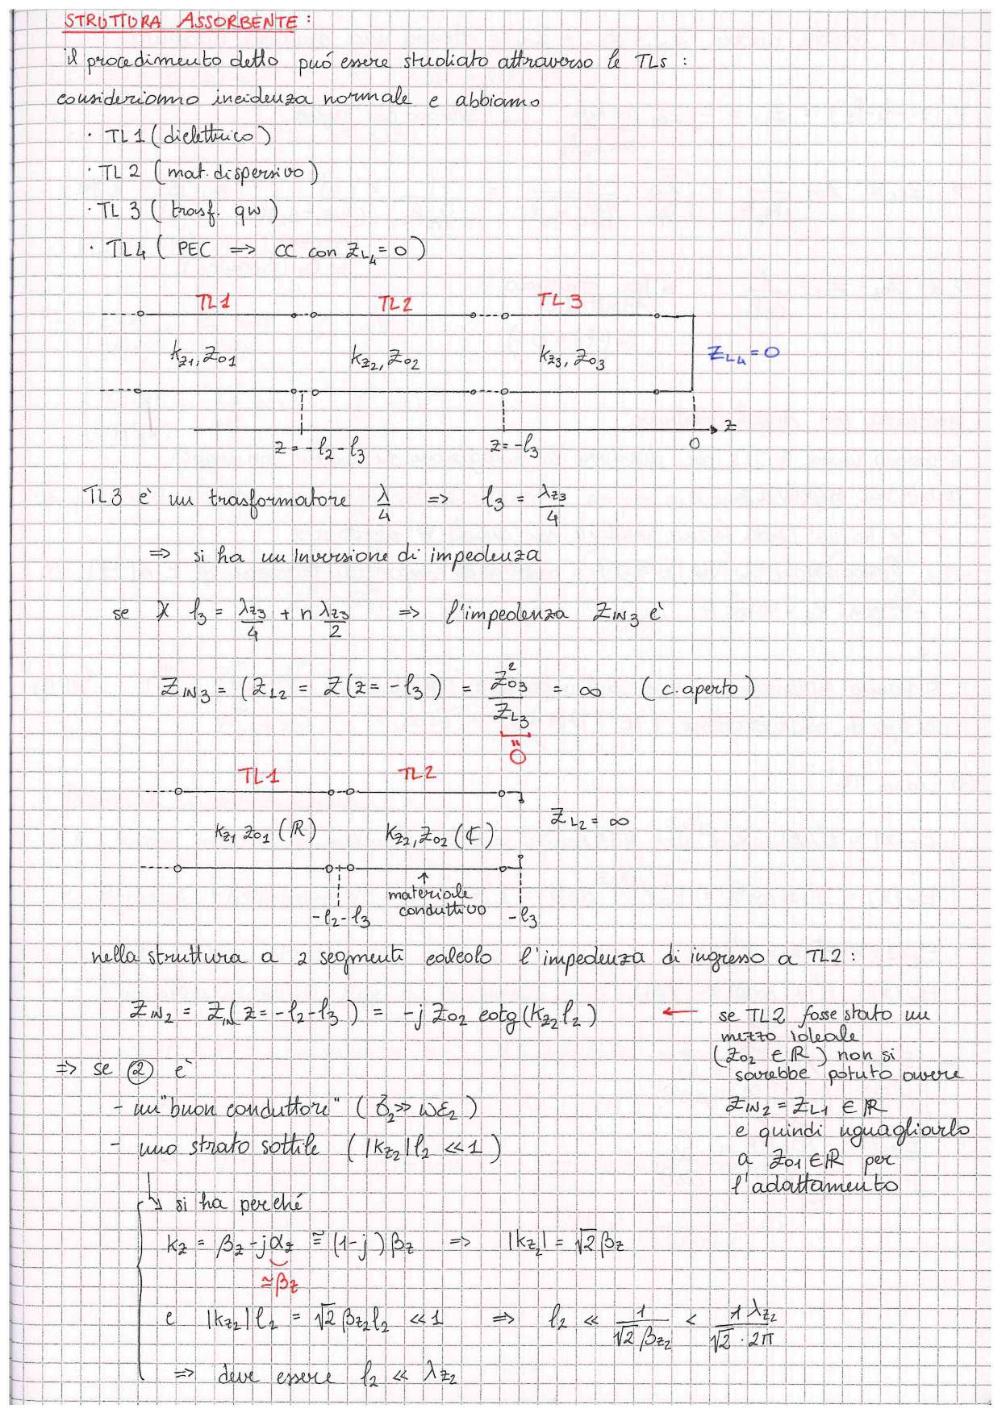 STRUTTURA ASSORBENTE:
il procedimento detto può essere studiato attraverso le TLs :
consideriamo incidenza normale e abbiamo
· TL1 (dielettrico)
· TL 2 (mat. dispersivo)
· TL 3 ( trasf. qw )
· TL4 ( PEC ⇒ CC con Z_L4 = 0 )
TL1 TL2 TL3
k_z1, Z_01 k_z2, Z_02 k_z3, Z_03 Z_L4 = 0
z
z = -l_2 - l_3 z = -l_3 0
TL3 è un trasformatore λ/4 ⇒ l_3 = λ_z3/4
⇒ si ha un inversione di impedenza
se l_3 = λ_z3/4 + n λ_z3/2 ⇒ l'impedenza Z_IN3 è
Z_IN3 = (Z_L2 = Z(z = -l_3) = Z_03²/Z_L3 = ∞ ( c. aperto )
"
0
TL1 TL2
k_z1 Z_01 (ℝ) k_z2, Z_02 (ℂ) Z_L2 = ∞
↑
materiale
conduttivo
-l_2 - l_3 -l_3
nella struttura a 2 segmenti calcolo l'impedenza di ingresso a TL2 :
Z_IN2 = Z_IN(z = -l_2 - l_3) = -j Z_02 cotg(k_z2 l_2) ← se TL2 fosse stato un
mezzo ideale
(Z_02 ∈ ℝ) non si
sarebbe potuto avere
Z_IN2 = Z_L1 ∈ ℝ
e quindi uguagliarlo
a Z_01 ∈ ℝ per
l'adattamento
⇒ se ② è
- un "buon conduttore" ( σ_2 >> ωε_2 )
- uno strato sottile ( |k_z2| l_2 << 1 )
↳ si ha perché
k_z = β_z - jα_z ≅ (1-j) β_z ⇒ |k_z2| = √2 β_z
≅ β_z
e |k_z2| l_2 = √2 β_z2 l_2 << 1 ⇒ l_2 << 1/(√2 β_z2) < 1 λ_z2/(√2 · 2π)
⇒ deve essere l_2 << λ_z2